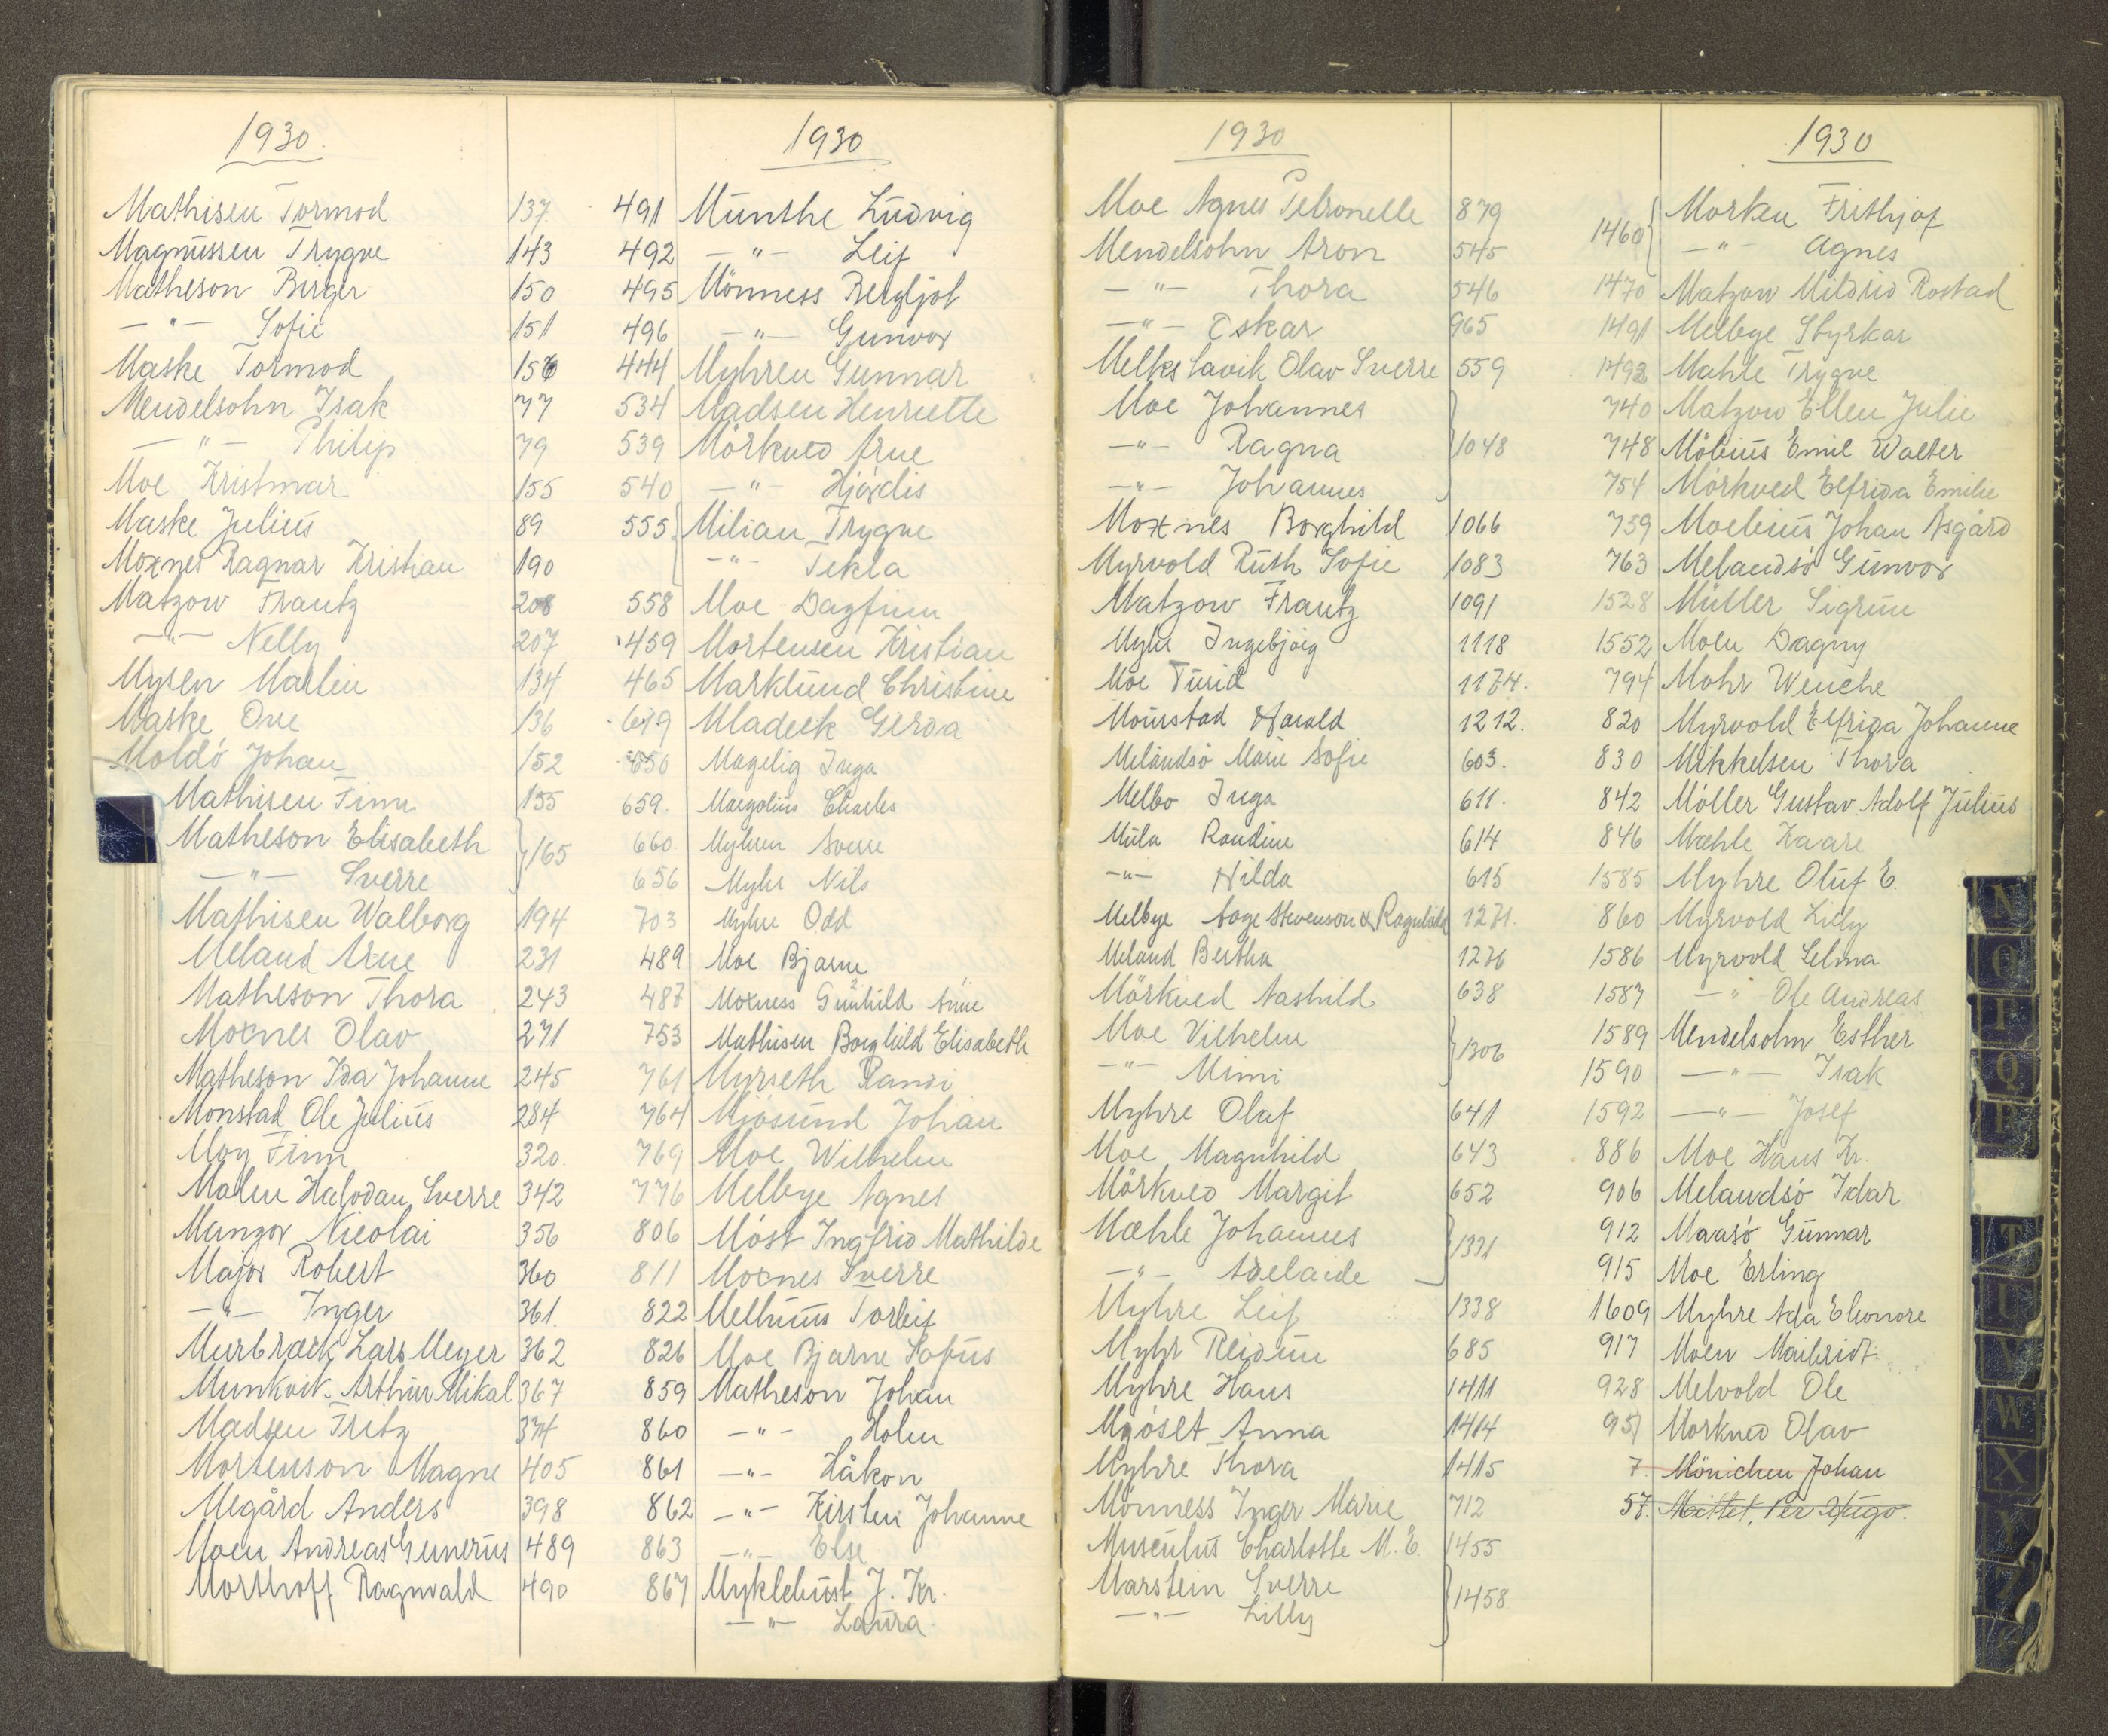 1930.
Mathisen Tormod 137.
Magnussen Trygve 143
Matheson Birger 150
—"— Sofie 151
Maske Tormod 156
Mendelsohn Isak 77
—"— Philip 79
Moe Kristmar 155
Maske Julius 89
Moxnes Ragnar Kristian 190
Matzow Frantz 208
—"— Nelly 207
Mysen Martin 134
Maske Ove 136
Moldö Johan 152
Mathisen Finn 155
Matheson Elisabeth } 165
—"— Sverre
Mathisen Walborg 194
Meland Arne 231
Matheson Thora 243
Moxnes Olav 271
Matheson Ida Johanne 245
Monstad Ole Julius 284
Moy Finn 320.
Malm Halvdan Sverre 342
Munzor Nicolai 356
Major Robert 360
—"— Inger 361.
Murbræck, Lars Meyer 362
Munkvik Arthur Mikal 367
Madsen Fritz 374
Mortenson Magne 405
Megård Anders 398
Moen Andreas Gunerius 489
Morthoff Ragnvald 490
1930
491 Munthe Ludvig
492 —"— Leif
495 Mönness Bergljot
496 —"— Gunvor
444 Myhren Gunnar
534 Madsen Henriette
539 Mörkved Arne
540 —"— Hjördis
555 { Milian Trygve
—"— Tekla
558 Moe Dagfinn
459 Mortensen Kristian
465 Marklund Christine
649 Mladeck Gerda
650 Magelig Inga
659. Margolius Charles
660. Myhren Sverre
656 Myhr Nils
703 Myhre Odd
489 Moe Bjarne
487 Moxness Gunhild Anne
753 Mathisen Borghild Elisabeth
761 Myrseth Randi
764 Mjösund Johan
769 Moe Wilhelm
776 Melbye Agnes
806 Möst Ingfrid Mathilde
811 Moxnes Sverre
822 Melhuus Torleif
826 Moe Bjarne Sofus
859 Matheson Johan
860 —"— Holm
861 —"— Håkon
862 —"— Kirsten Johanne
863 —"— Else
867 Myklebust J. Kr.
—"— Laura.
1930
Moe Agnes Petronelle 879
Mendelsohn Aron 545
—"— Thora 546
—"— Oskar 965
Melkslavik Olav Sverre 559
Moe Johannes
—"— Ragna } 1048
—"— Johannes
Moxnes Borghild 1066
Myrvold Ruth Sofie 1083
Matzow Frantz 1091
Myhr Ingebjörg 1118
Moe Turid 1174.
Monstad Harald 1212.
Melandsö Marie Sofie 603.
Melbo Inga 611.
Mula Randine 614
—"— Hilda 615
Melbye Aage Stevenson & Ragnhild 1271.
Meland Bertha 1276
Mörkved Aashild 638
Moe Vilhelm } 1306
—"— Mimi
Myhre Olaf 641
Moe Magnhild 643
Mörkved Margit 652
Mæhle Johannes } 1331
—"— Adelaide
Myhre Leif 1338
Myhr Reidun 685
Myhre Hans 1411
Mjöset Anna 1414
Myhre Thora 1415
Mönness Inger Marie 712
Musculus Charlotte M. E. 1455
Marstein Sverre } 1458
—"— Lilly
1930
1460 { Morken Frithjof
—"— Agnes
1470 Matzow Mildrid Rostad
1491 Melbye Styrkar
1492 Mahle Trygve
740 Matzow Ellen Julie
748 Möbius Emil Walter
754 Mörkved Elfrida Emilie
759 Moebius Johan Asgård
763 Melandsö Gunvor
1528 Müller Sigrun
1552 Moen Dagny
794 Mohr Wenche
820 Myrvold Elfrida Johanne
830 Mikkelsen Thora
842 Möller Gustav Adolf Julius
846 Mæhle Kaare
1585 Myhre Oluf E.
860 Myrvold Lilly
1586 Myrvold Selma
1587 —"— Ole Andreas
1589 Mendelsohn Esther
1590 —"— Isak
1592 —"— Josef
886 Moe Hans Kr.
906 Melandsö Idar
912 Maasö Gunnar
915 Moe Erling
1609 Myhre Ada Eleonore
917 Moen Maibridt
928 Melvold Ole
951 Morkved Olav
7. Mönichen Johan
57. Mittet, Per Hugo.
N
O
P
Q
T
U
V
W
X
Y
Z